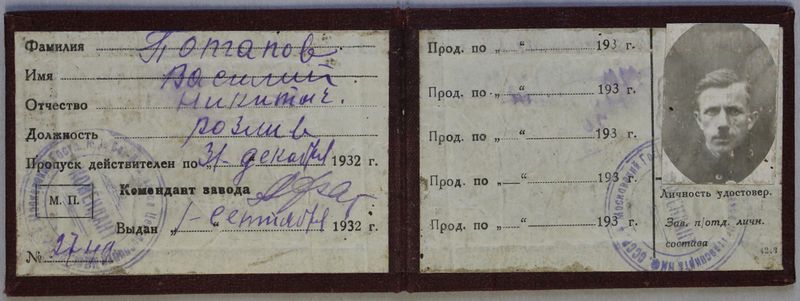 Фамилия Потапов
Имя Василий
Отчество Никитич.
Должность розлив
Пропуск действителен по „31“ декабря 1932 г.
М. П.
Комендант завода
Выдан „1“ сентября 1932 г.
№
Прод. по „ “ 193 г.
Прод. по „ “ 193 г.
Прод. по „ “ 193 г.
Прод. по „ “ 193 г.
Прод. по „ “ 193 г.
Личность удостовер.
Зав. п/отд. личн.
состава